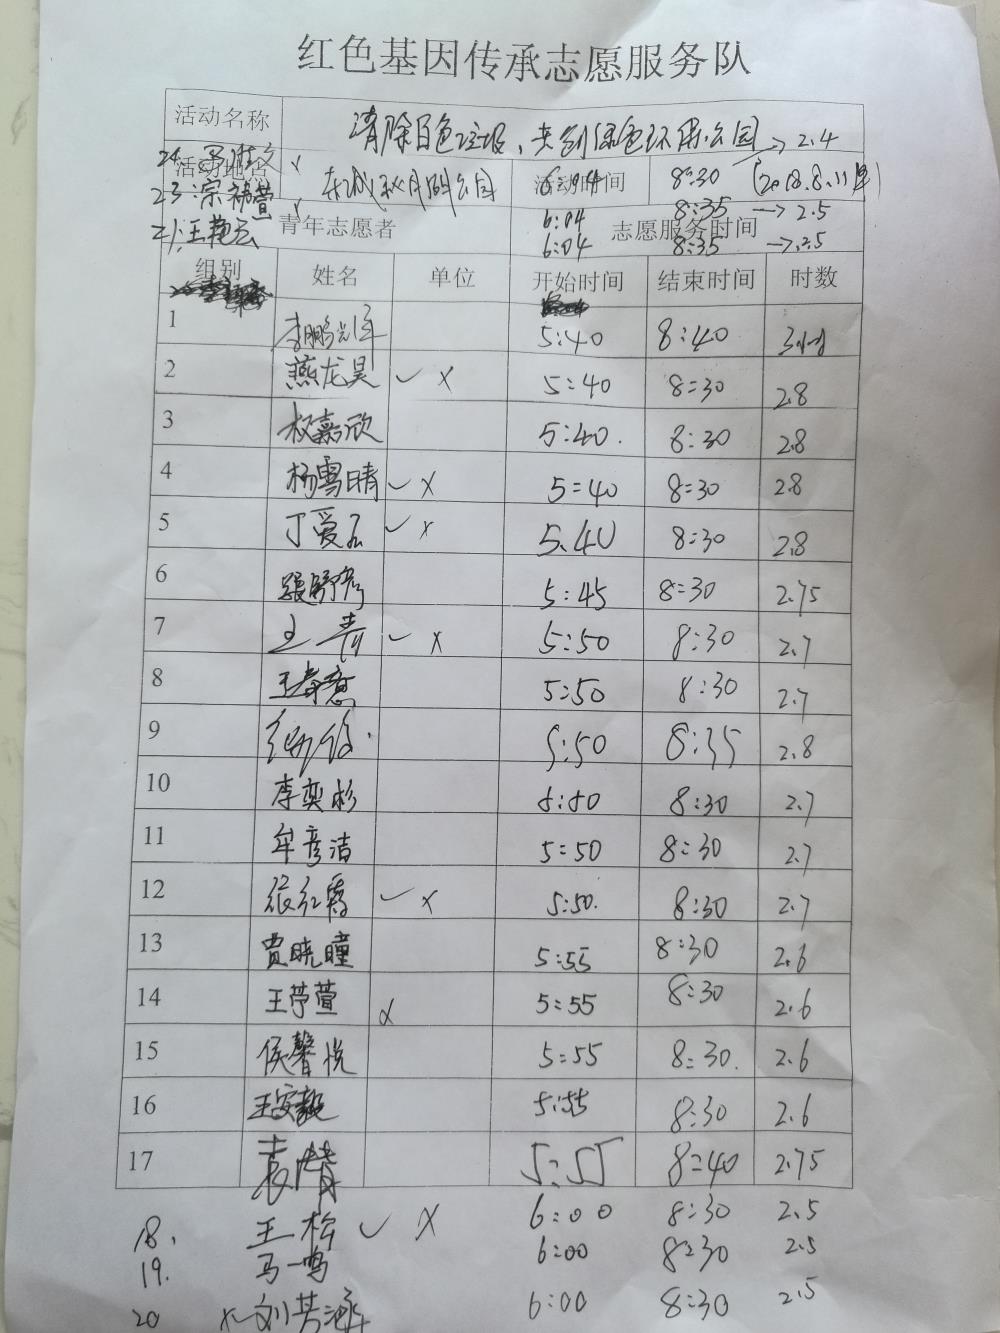 红色基因传承志愿服务队
活动名称 清除白色垃圾、共创绿色环保公园 → 2.4
24. x 活动地名 东城秋月湖公园 活动时间 6:04 8:30 (2018.8.11
23. 宗 萱 x 6:04 8:35 → 2.5
21. 王艳云 青年志愿者 志愿服务时间 6:04 8:35 → 2.5
组别 姓名 单位 开始时间 结束时间 时数
1 李鹏 5:40 8:40
2 燕龙昊 ✓ x 5:40 8:30 2.8
3 权嘉欣 5:40. 8:30 2.8
4 杨雪晴 ✓ x 5:40 8:30 2.8
5 丁爱 ✓ x 5.40 8:30 2.8
6 张舒彦 5:45 8:30 2.75
7 王青 ✓ x 5:50 8:30 2.7
8 王春意 5:50 8:30 2.7
9 5:50 8:35 2.8
10 李奕杉 5:50 8:30 2.7
11 牟彦洁 5:50 8:30 2.7
12 张红霞 ✓ x 5:50. 8:30 2.7
13 贾晓瞳 5:55 8:30 2.6
14 王苧萱 x 5:55 8:30 2.6
15 侯馨悦 5:55 8:30. 2.6
16 王安毅 5:55 8:30 2.6
17 袁晴 5:55 8:40 2.75
18. 王松 ✓ x 6:00 8:30 2.5
19. 马一鸣 6:00 8:30 2.5
20 x 刘芳涵 6:00 8:30 2.5